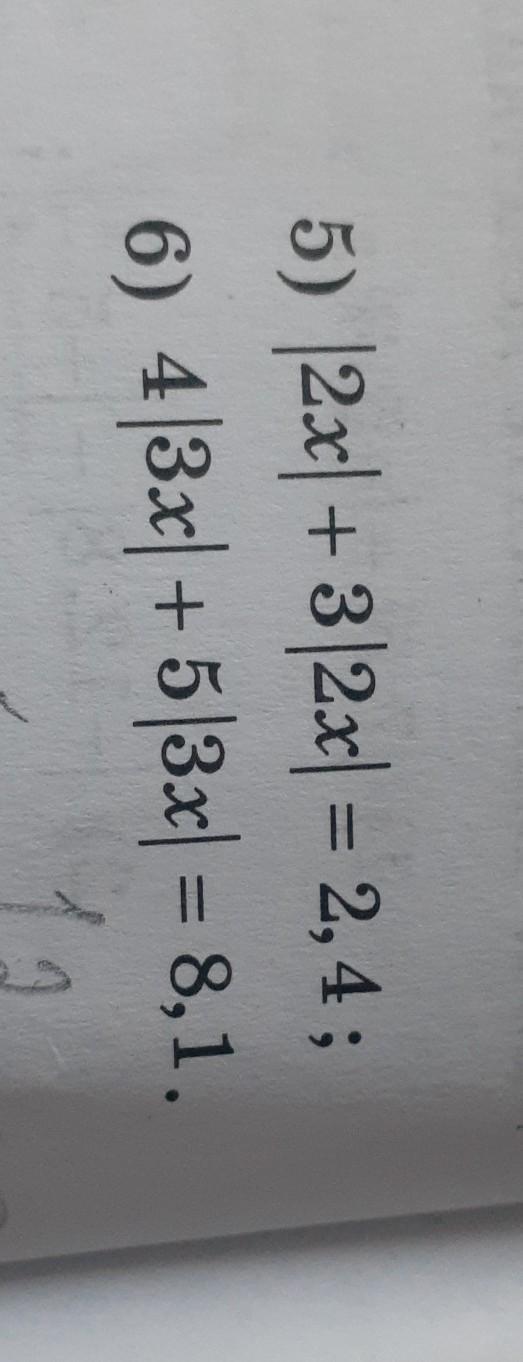 5) |2x| + 3|2x| = 2,4;
6) 4|3x| + 5|3x| = 8,1.